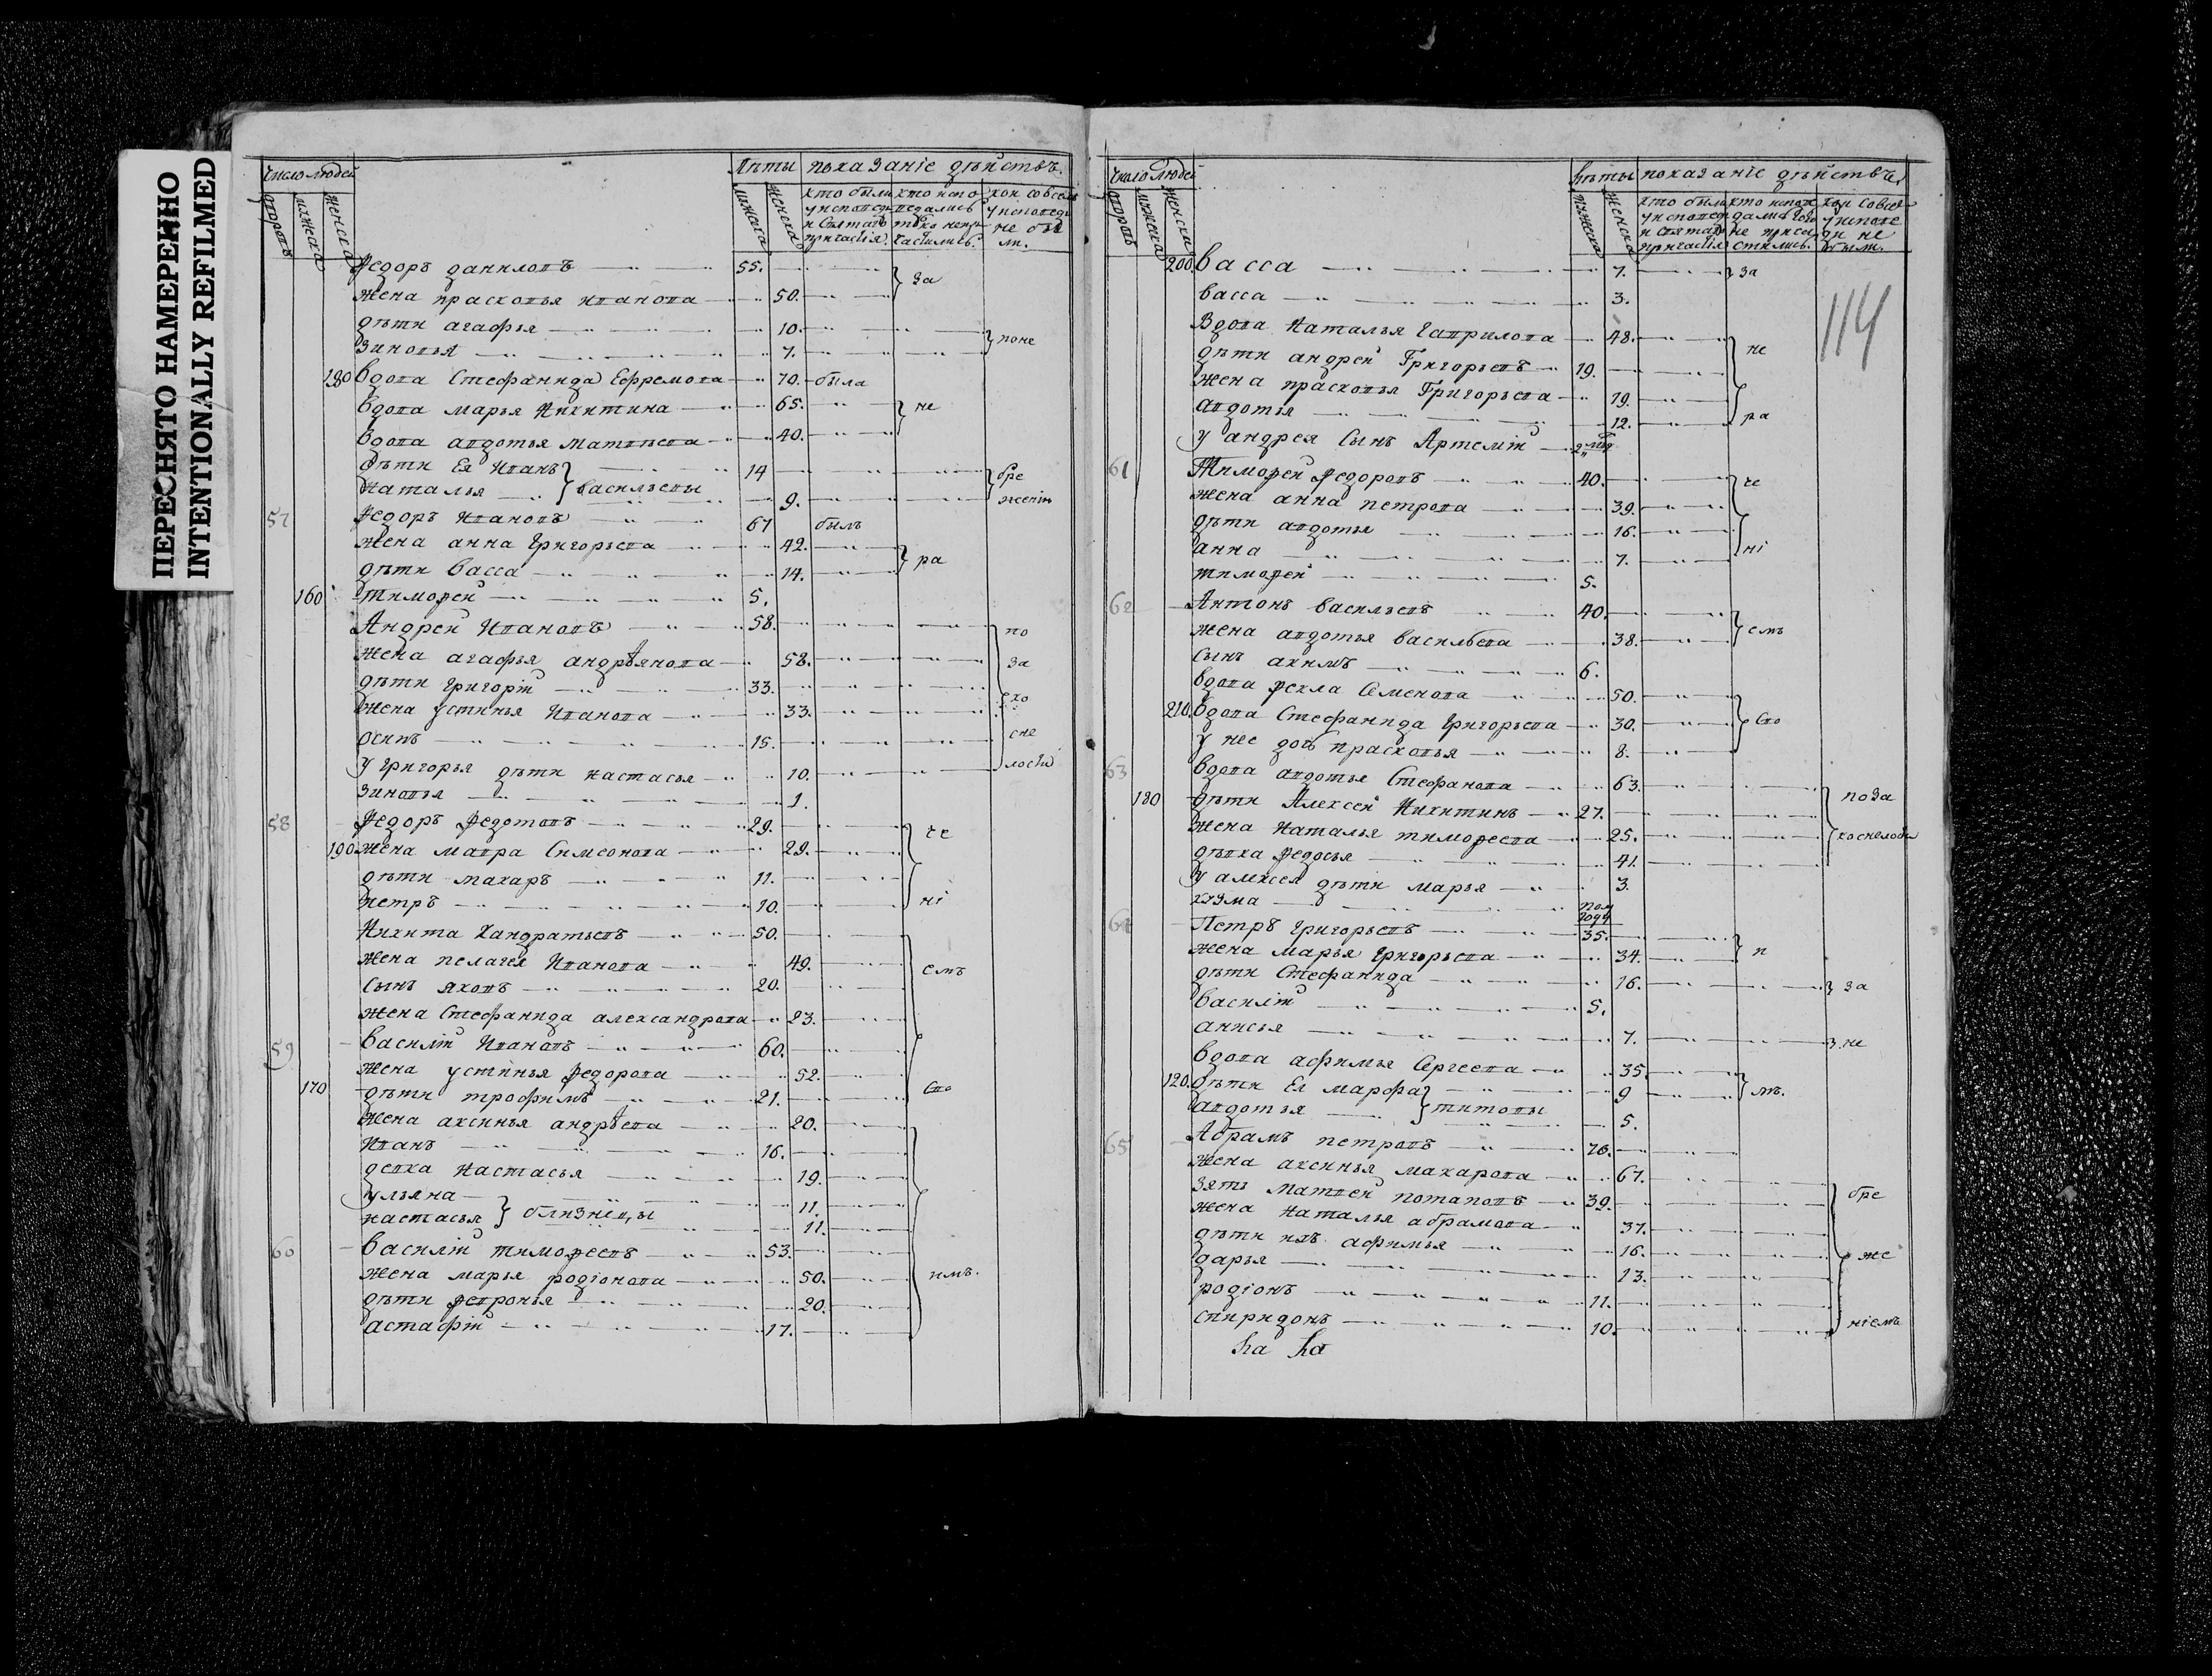 ПЕРЕСНЯТО НАМЕРЕННО
INTENTIONALLY REFILMED
Число людей
Лѣты показаніе дѣйствъ.
дворовъ мужеска женска
мужеска женска
кто были у исповеди и Святаго причастія
кто испо ведались токо непри частились.
кои совсем у исповеди не бы ли.
Федоръ даниловъ 55.
жена прасковья иванова 50. за
дѣти агафья 10.
Зиновья 7. поне
180 вдова Стефанида Ефремова 70. была
вдова марья Никитина 65. не
вдова авдотья матвѣева 40.
дѣти Ея Иванъ 14 бре
Наталья васильевы 9. жению
57 Федоръ Ивановъ 67 былъ
жена анна Григорьева 42.
дѣти Васса 14. ра
160 тимофей 5.
Андрей Ивановъ 58. по
жена агафья андрѣянова 58. за
дѣти Григорій 33.
жена устинья Иванова 33. ко
осипъ 15. сне
у Григорья дѣти настасья 10. лости
Зиновья 1.
58 Федоръ Федотовъ 29. че
190 жена мавра Симеонова 29.
дѣти макаръ 11.
петръ 10. ні
Никита Кандратьевъ 50.
жена пелагея Иванова 49. емъ
Сынъ яковъ 20.
жена Стефанида александрова 23.
59 Василій Ивановъ 60.
жена устинья Федорова 52.
170 дѣти трофимъ 21. Сво
жена аксинья андрѣева 20.
Иванъ 16.
девка Настасья 19.
ульяна 11.
настасья близнецы 11.
60 Василій тимофеевъ 53.
жена марья родіонова 50. имъ.
дѣти февронья 20.
астафій 17.
Число людей
Лѣты показаніе дѣйствъ.
дворовъ мужеска женска
мужеска женска
114
200. Васса 7. за
Васса 3.
Вдова Наталья Гаврилова 48. не
дѣти андрей Григорьевъ 19.
жена прасковья Григорьева 19.
авдотья 12. ра
у андрея Сынъ Артемій 2
61 Тимофей Федоровъ 40. че
жена анна петрова 39.
дѣти авдотья 16.
анна 7. ні
тимофей 5.
62 Антонъ Васильевъ 40. емъ
жена авдотья Васильева 38.
Сынъ акимъ 6.
вдова фекла Семенова 50.
210. вдова Стефанида Григорьева 30. Сво
у нее дочь прасковья 8.
63 вдова авдотья Стефанова 63. поза
180 дѣти Алексей Никитинъ 27.
жена Наталья тимофеева 25.
дѣвка федосья 41.
у алексея дѣти марья 3.
кузма пол году
64 Петръ Григорьевъ 35. п
жена марья Григорьева 34.
дѣти Стефанида 16. за
Василій 5.
анисья 7. не
вдова афимья Сергеева 35.
120. дѣти Ея марфа 9 мъ.
авдотья титовы 5.
65 Абрамъ петровъ 70.
жена аксинья макарова 67.
зять матвей потаповъ 39. бре
жена Наталья абрамова 37.
дѣти ихъ афимья 16. же
дарья 13.
родіонъ 11.
спиридонъ 10. ніемъ